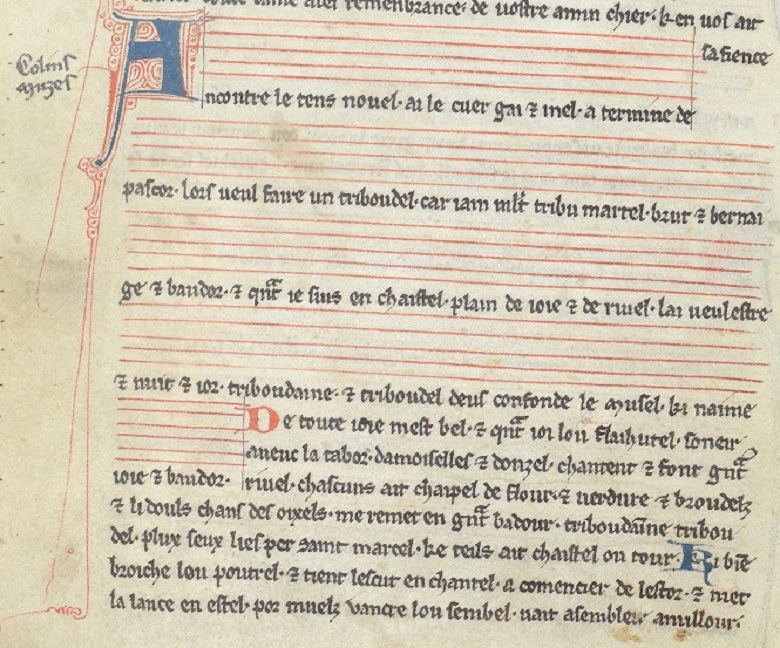 remenbrance· de uostre amin chier· ken uos ait
sapience
Colins
muzes
Ancontre le tens nouel· ai le cuer gai ⁊ inel· a termine de
pascor· lors ueul faire un triboudel· car iam mlt tribu martel· brut ⁊ bernai
ge ⁊ baudor· ⁊ qnt ie suis en chaistel· plain de ioie ⁊ de riuel· lai ueul estre
⁊ nuit ⁊ ior· triboudaine· ⁊ triboudel deus confonde le musel· ki naime
ioie ⁊ baudor·
De toute ioie mest bel· ⁊ qnt ioi lou flaihutel· soneir
aueuc la tabor· damoiselles ⁊ donzel· chantent ⁊ font gnt
riuel· chascuns ait chaipel de flour· ⁊ uerdure ⁊ broudelz
⁊ li douls chans des oixels· me remet en gnt badour· triboudaine tribou
del· plux seux lies per saint marcel· ke teils ait chaistel ou tour· Ki bie
broiche lou poutrel· ⁊ tient lescut en chantel· a comencier de lestor· ⁊ met
la lance en estel· por muelz vancre lou sembel· uait asembleir a millour·